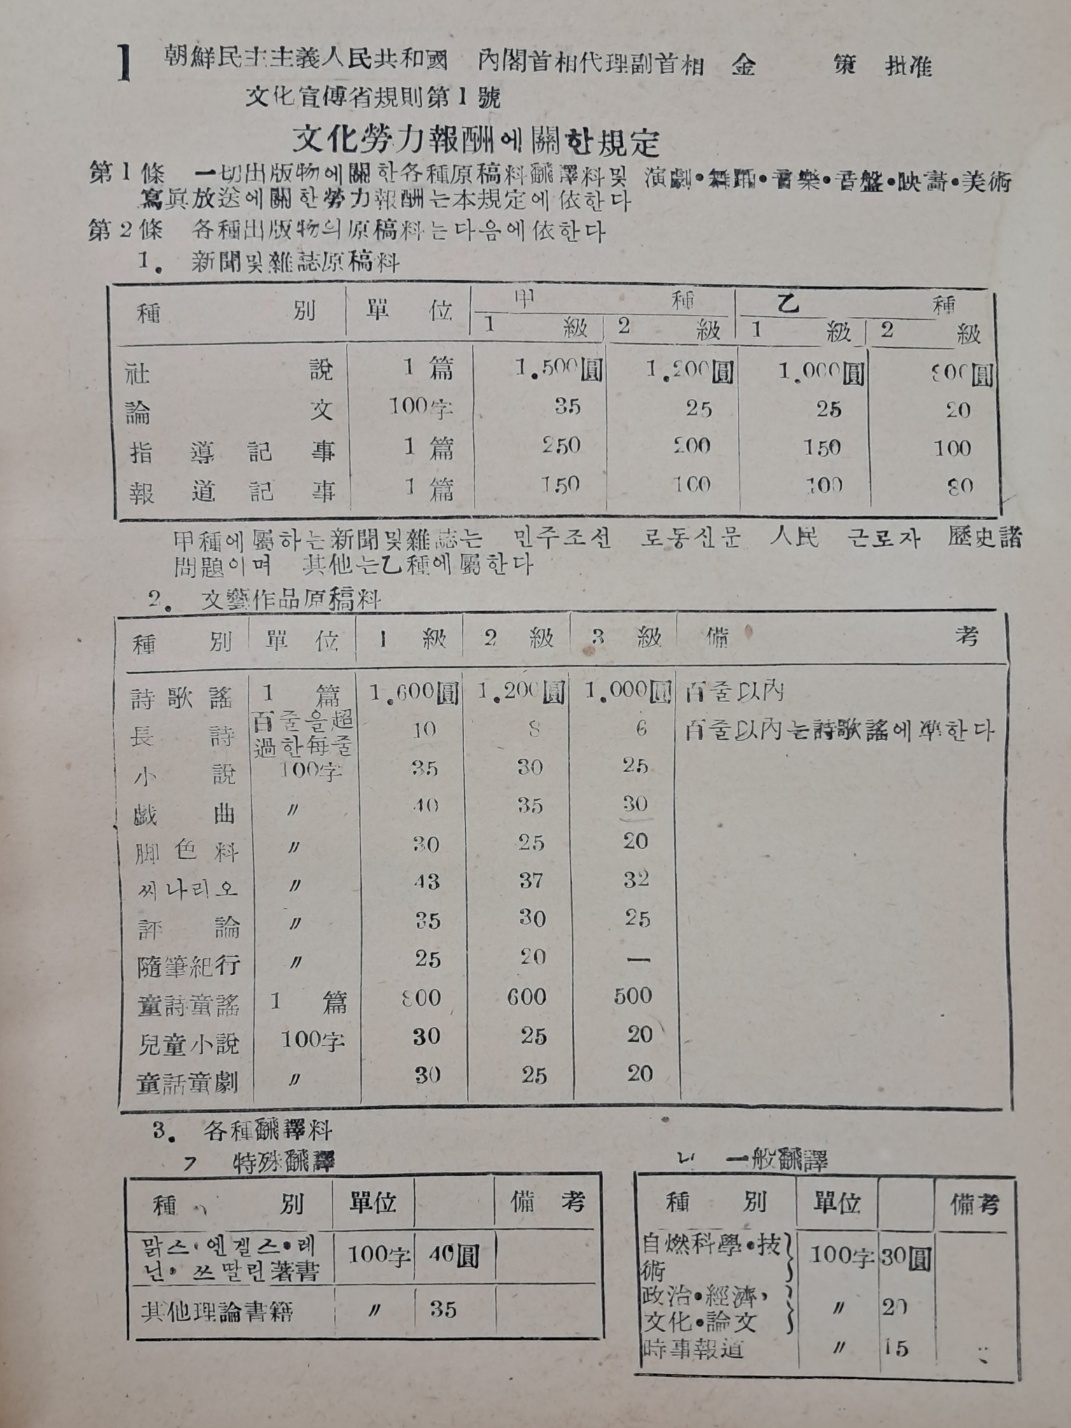 1 朝鮮民主主義人民共和國 內閣首相代理副首相 金 策 批准
文化宣傳省規則第1號
文化勞力報酬에關한規定
第1條 一切出版物에關한各種原稿料飜譯料및 演劇•舞踊•音樂•音盤•映畵•美術
寫眞放送에關한勞力報酬는本規定에依한다
第2條 各種出版物의原稿料는다음에依한다
1. 新聞및雜誌原稿料
種別 單位 甲種 乙種
1級 2級 1級 2級
社說 1篇 1.500圓 1.200圓 1.000圓 800圓
論文 100字 35 25 25 20
指導記事 1篇 250 200 150 100
報道記事 1篇 150 100 100 80
甲種에屬하는新聞및雜誌는 민주조선 로동신문 人民 근로자 歷史諸
問題이며 其他는乙種에屬한다
2. 文藝作品原稿料
種別 單位 1級 2級 3級 備考
詩歌謠 1篇 1.600圓 1.200圓 1.000圓 百줄以內
長詩 百줄을超過한每줄 10 8 6 百줄以內는詩歌謠에準한다
小說 100字 35 30 25
戱曲 〃 40 35 30
脚色料 〃 30 25 20
씨나리오 〃 43 37 32
評論 〃 35 30 25
隨筆紀行 〃 25 20 —
童詩童謠 1篇 800 600 500
兒童小說 100字 30 25 20
童話童劇 〃 30 25 20
3. 各種飜譯料
ㄱ 特殊飜譯
種別 單位 備考
맑스•엔겔스•레
닌•쓰딸린著書 100字 40圓
其他理論書籍 〃 35
ㄴ 一般飜譯
種別 單位 備考
自燃科學•技
術 100字 30圓
政治•經濟,
文化•論文 〃 20
時事報道 〃 15